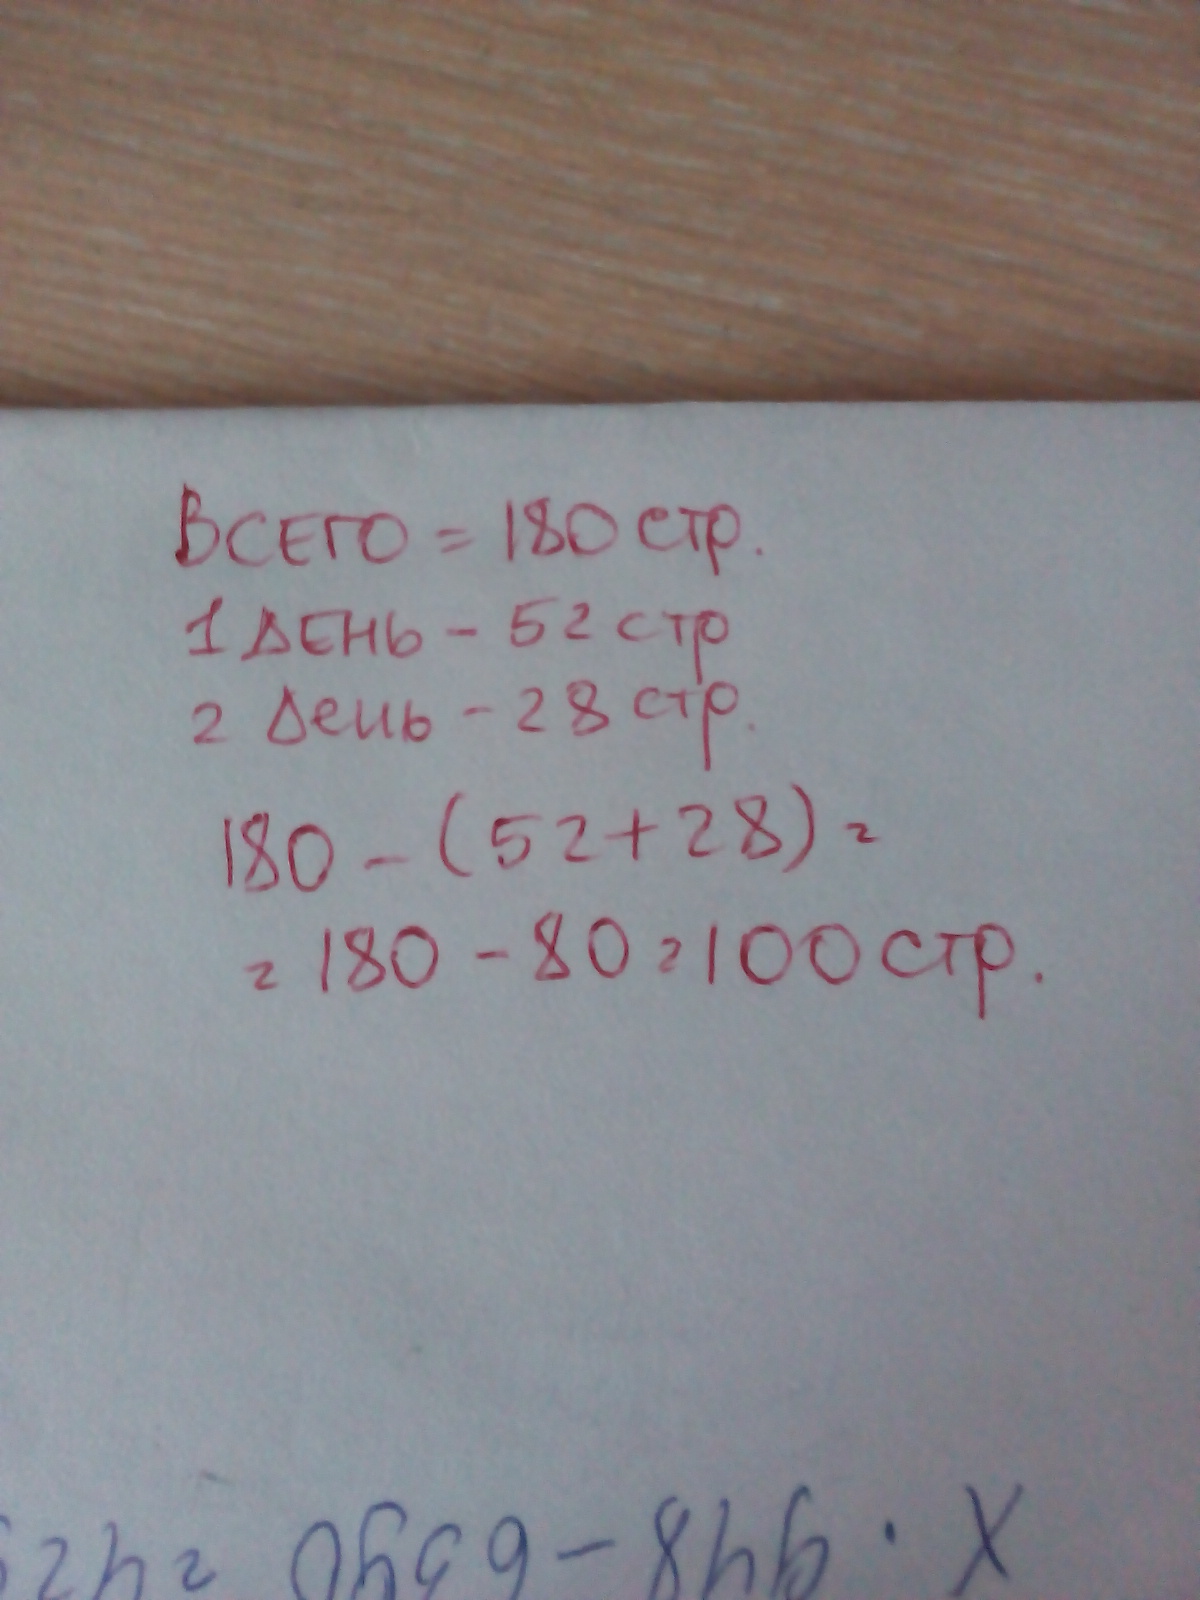 ВСЕГО = 180 стр.
1 ДЕНЬ - 52 стр
2 День - 28 стр.
180 - (52+28) =
= 180 - 80 = 100 стр.